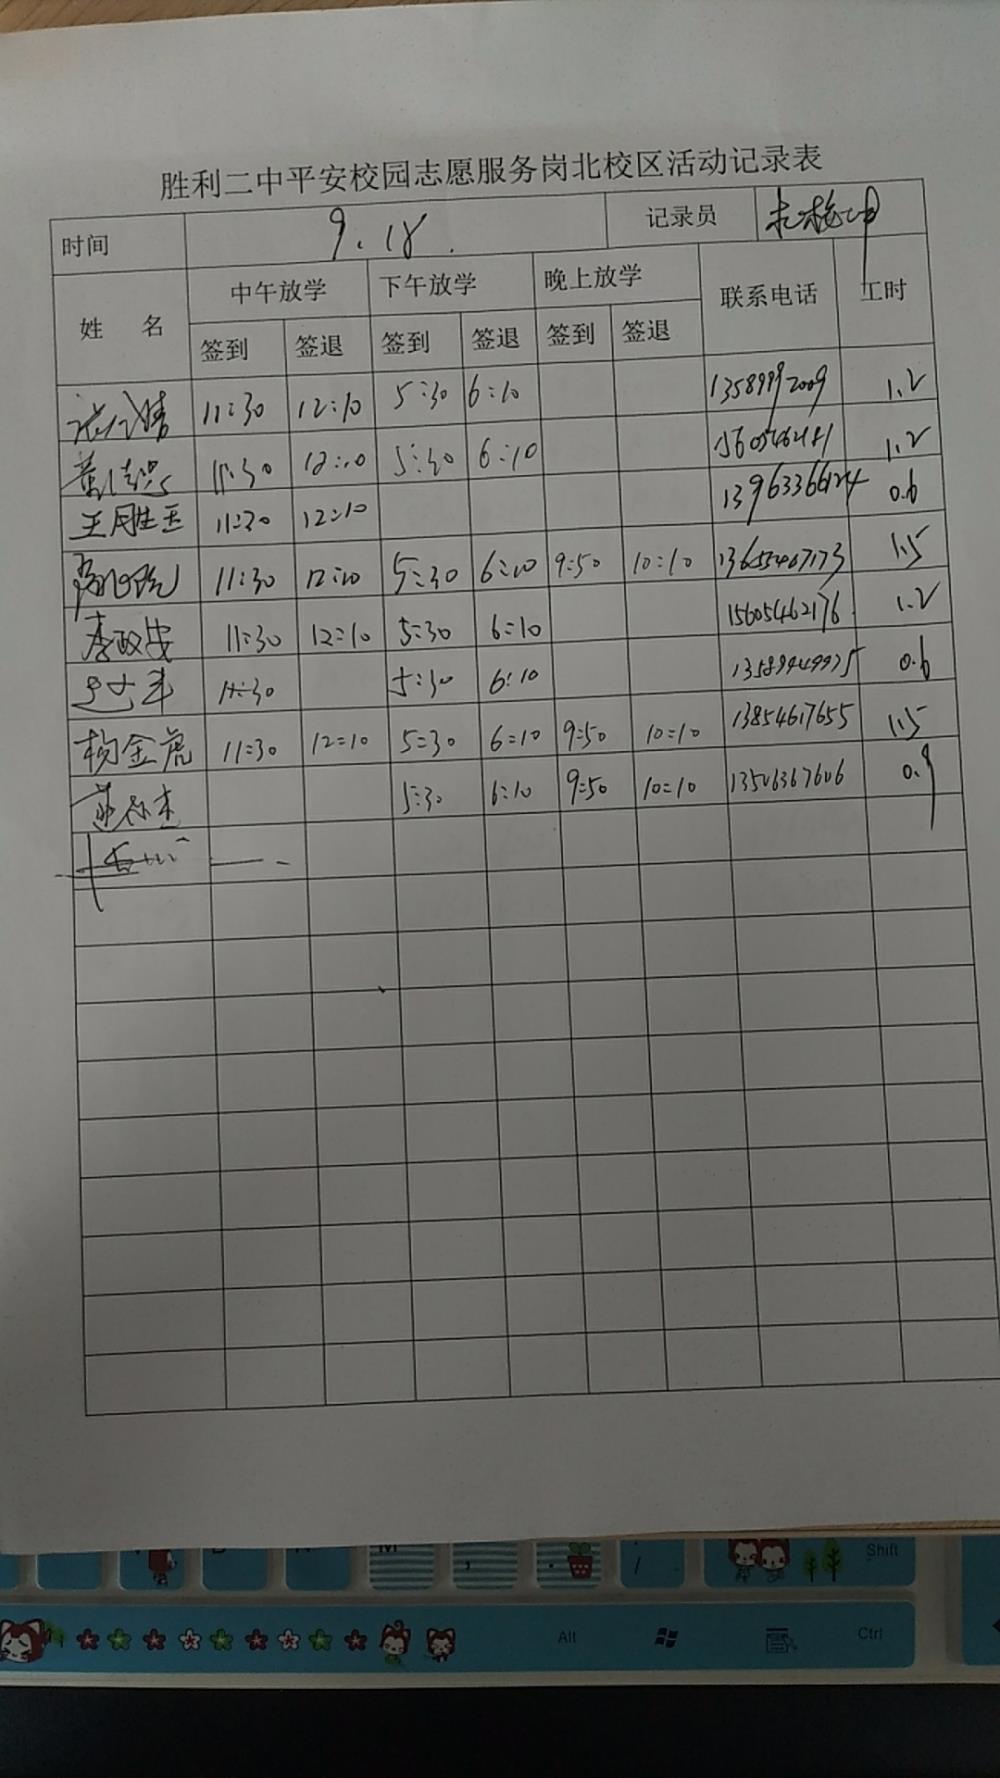 胜利二中平安校园志愿服务岗北校区活动记录表
时间 9.18. 记录员
姓 名 中午放学 下午放学 晚上放学 联系电话 工时
签到 签退 签到 签退 签到 签退
11:30 12:10 5:30 6:10 13589992009 1.2
11:30 12:10 5:30 6:10 1.2
王胜玉 11:30 12:10 13963366124 0.6
11:30 12:10 5:30 6:10 9:50 10:10 1.5
李政安 11:30 12:10 5:30 6:10 15605462176 1.2
11:30 5:30 6:10 13589449975 0.6
杨金虎 11:30 12:10 5:30 6:10 9:50 10:10 13854617655 1.5
5:30 6:10 9:50 10:10 13506367606 0.9
M , . / Shift
Alt Ctrl